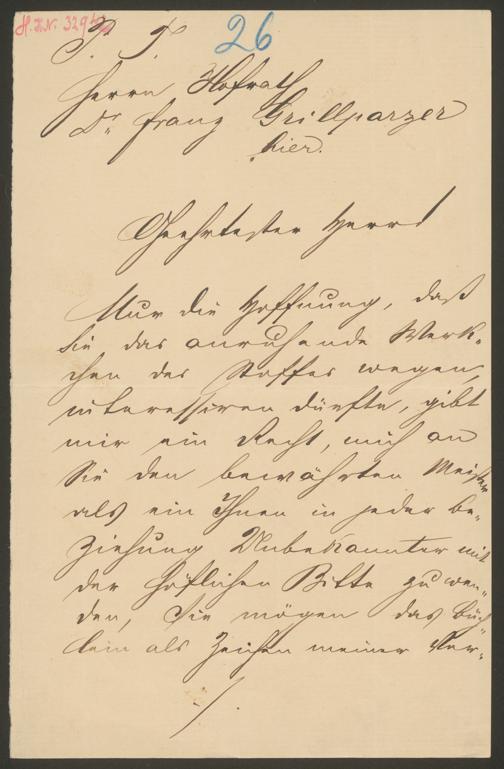 H.I.N. 3296
26
P. T.
Herrn Hofrath
Dr. Franz Grillparzer
hier.
Geehrtester Herr!
Nur die Hoffnung, daß
Sie das anruhende Werk-
chen des Stoffes wegen
interessiren dürfte, gibt
mir ein Recht, mich an
Sie den bewährten Meister
als ein Ihnen in jeder Be-
ziehung Unbekannter mit
der höflichen Bitte zu wen-
den, Sie mögen das Büch-
lein als Zeichen meiner Ver-
./.